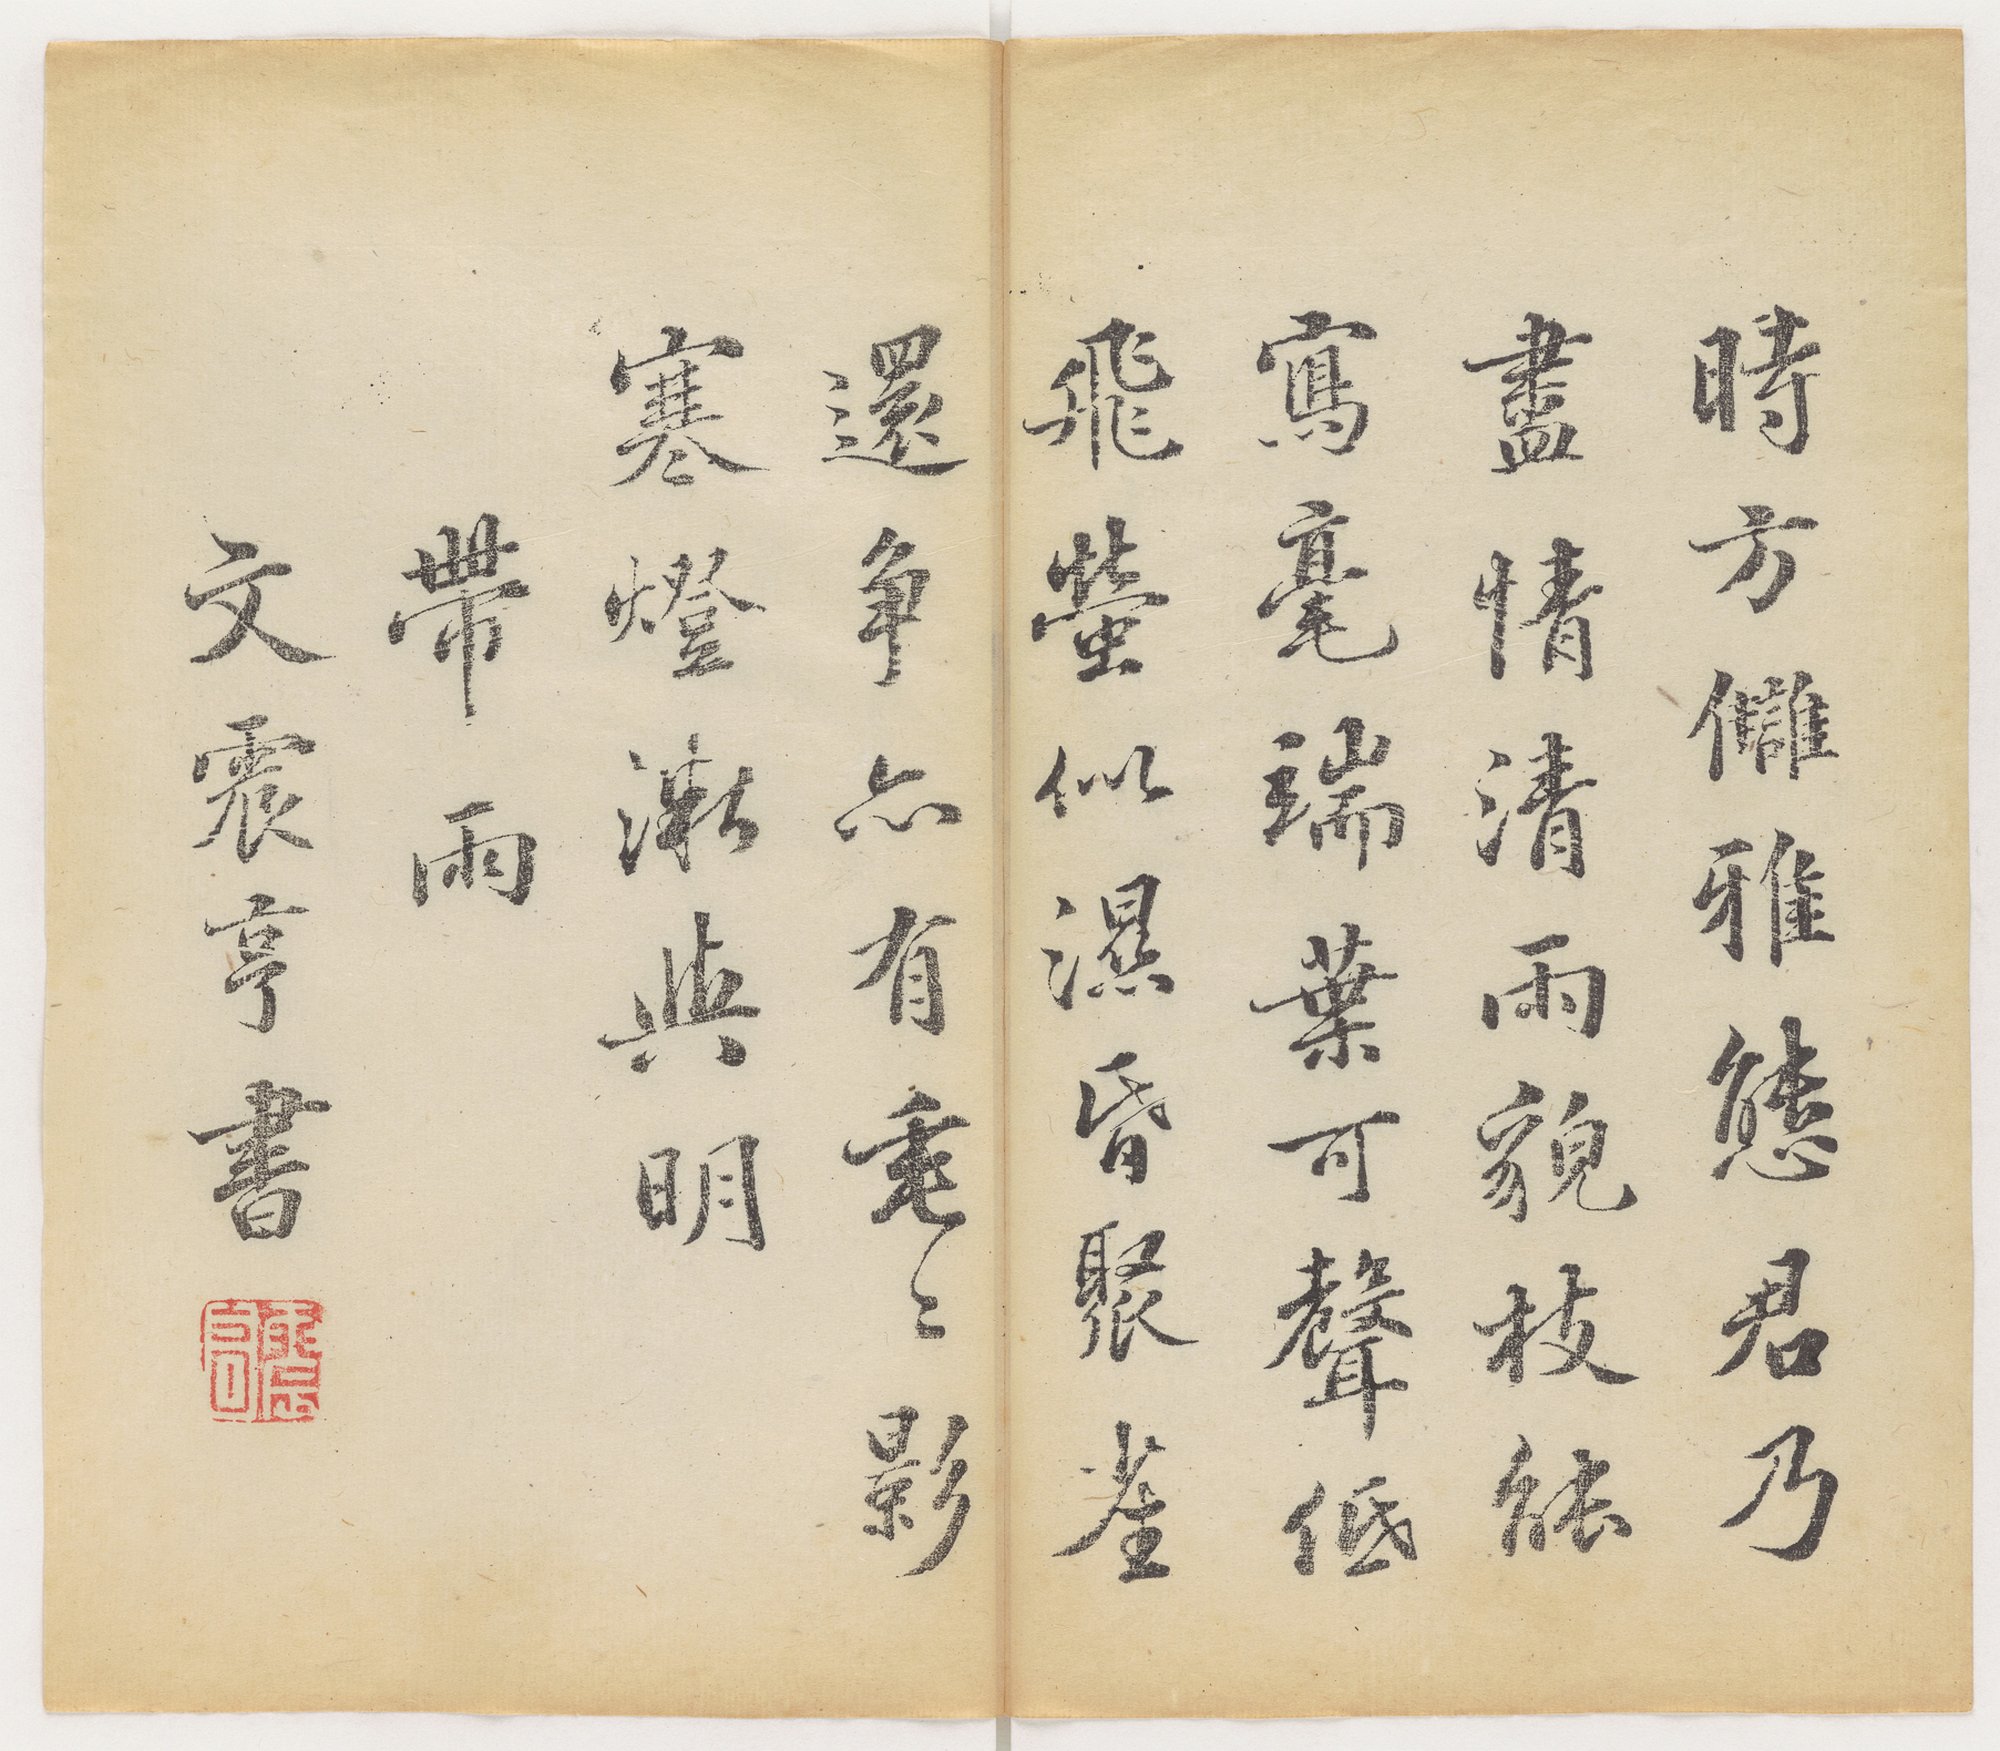 時方讎雅態君乃
盡情清雨貌枝能
寫毫端葉可聲低
飛螢似濕昏聚雀
還争亦有垂〻影
寒燈漸與明
帶雨
文震亨書